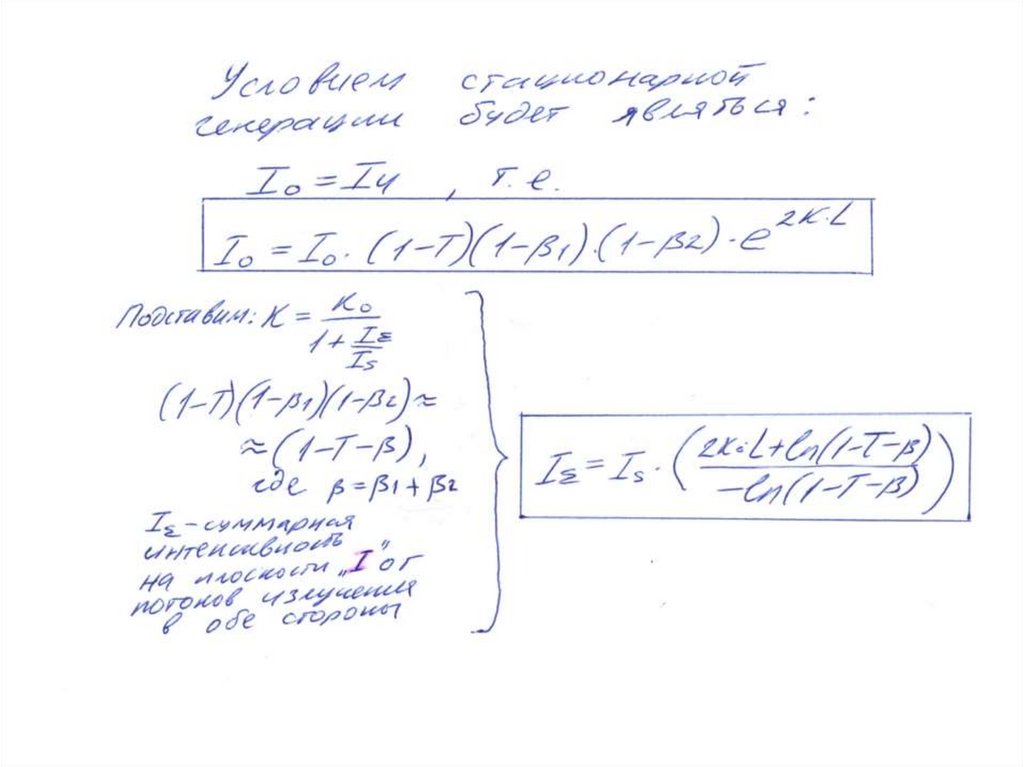 Условием стационарной
генерации будет являться:
I₀ = I₄ , т.е.
I₀ = I₀·(1-T)(1-β₁)·(1-β₂)·e^{2K·L}
Подставим: K = K₀ / (1 + I_Σ / I_s)
(1-T)(1-β₁)(1-β₂) ≈
≈ (1-T-β),
где β = β₁ + β₂
I_Σ - суммарная
интенсивность
на плоскости „I" от
потоков излучения
в обе стороны
I_Σ = I_s · ( (2K₀L + ln(1-T-β)) / (-ln(1-T-β)) )